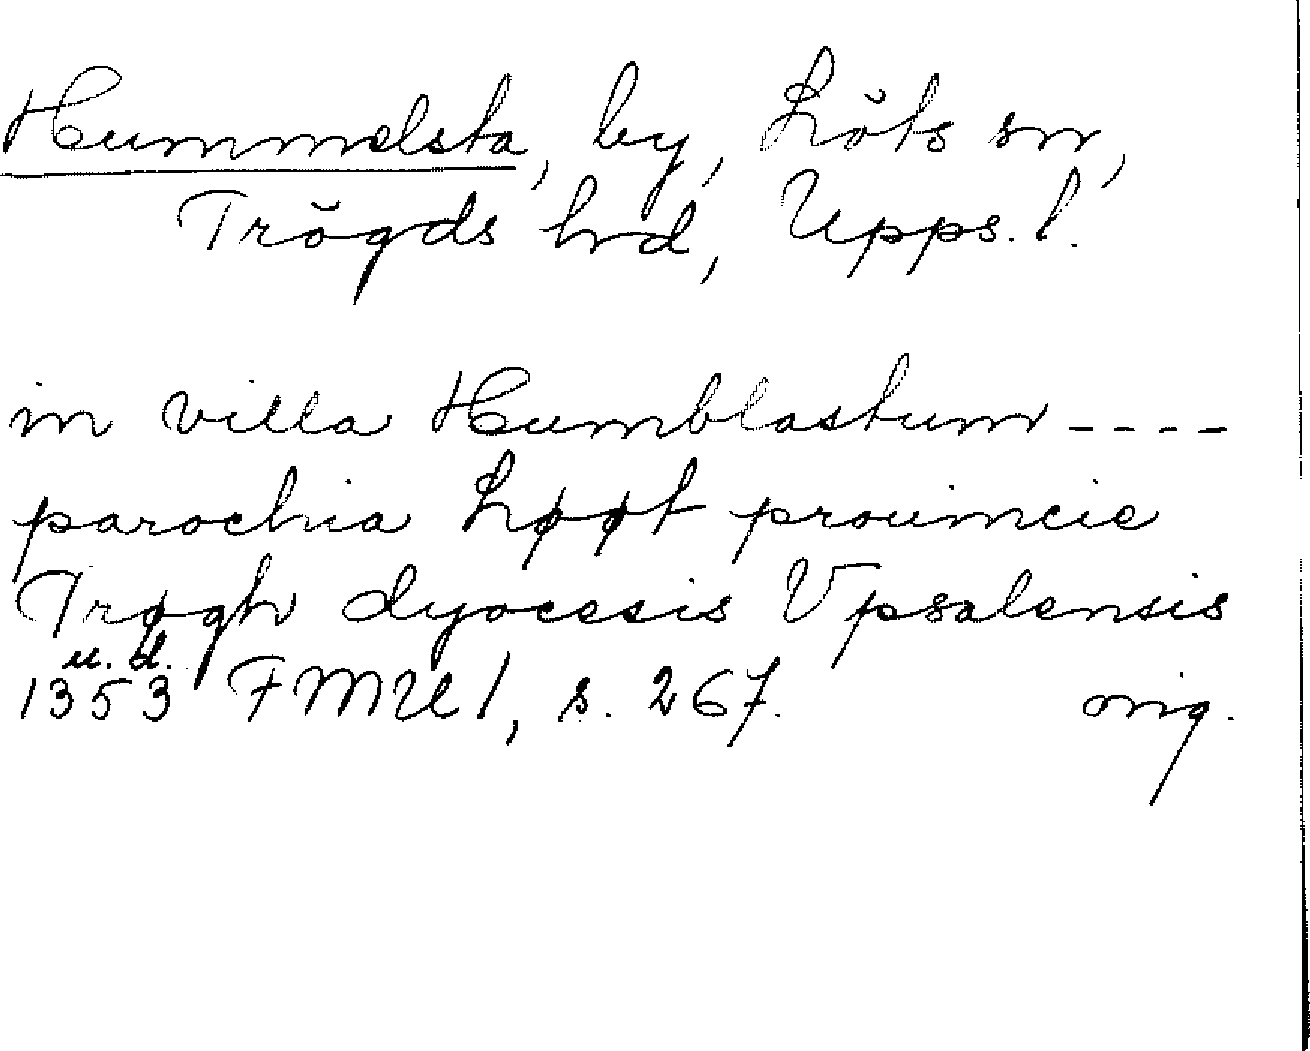 Hummelsta, by, Löts sn,
Trögds hrd, Upps. l.
in villa Humblastum ----
parochia Løøt prouincie
Trøgh dyocesis Vpsalensis
u. d.
1353 FMU 1, s. 267. orig.